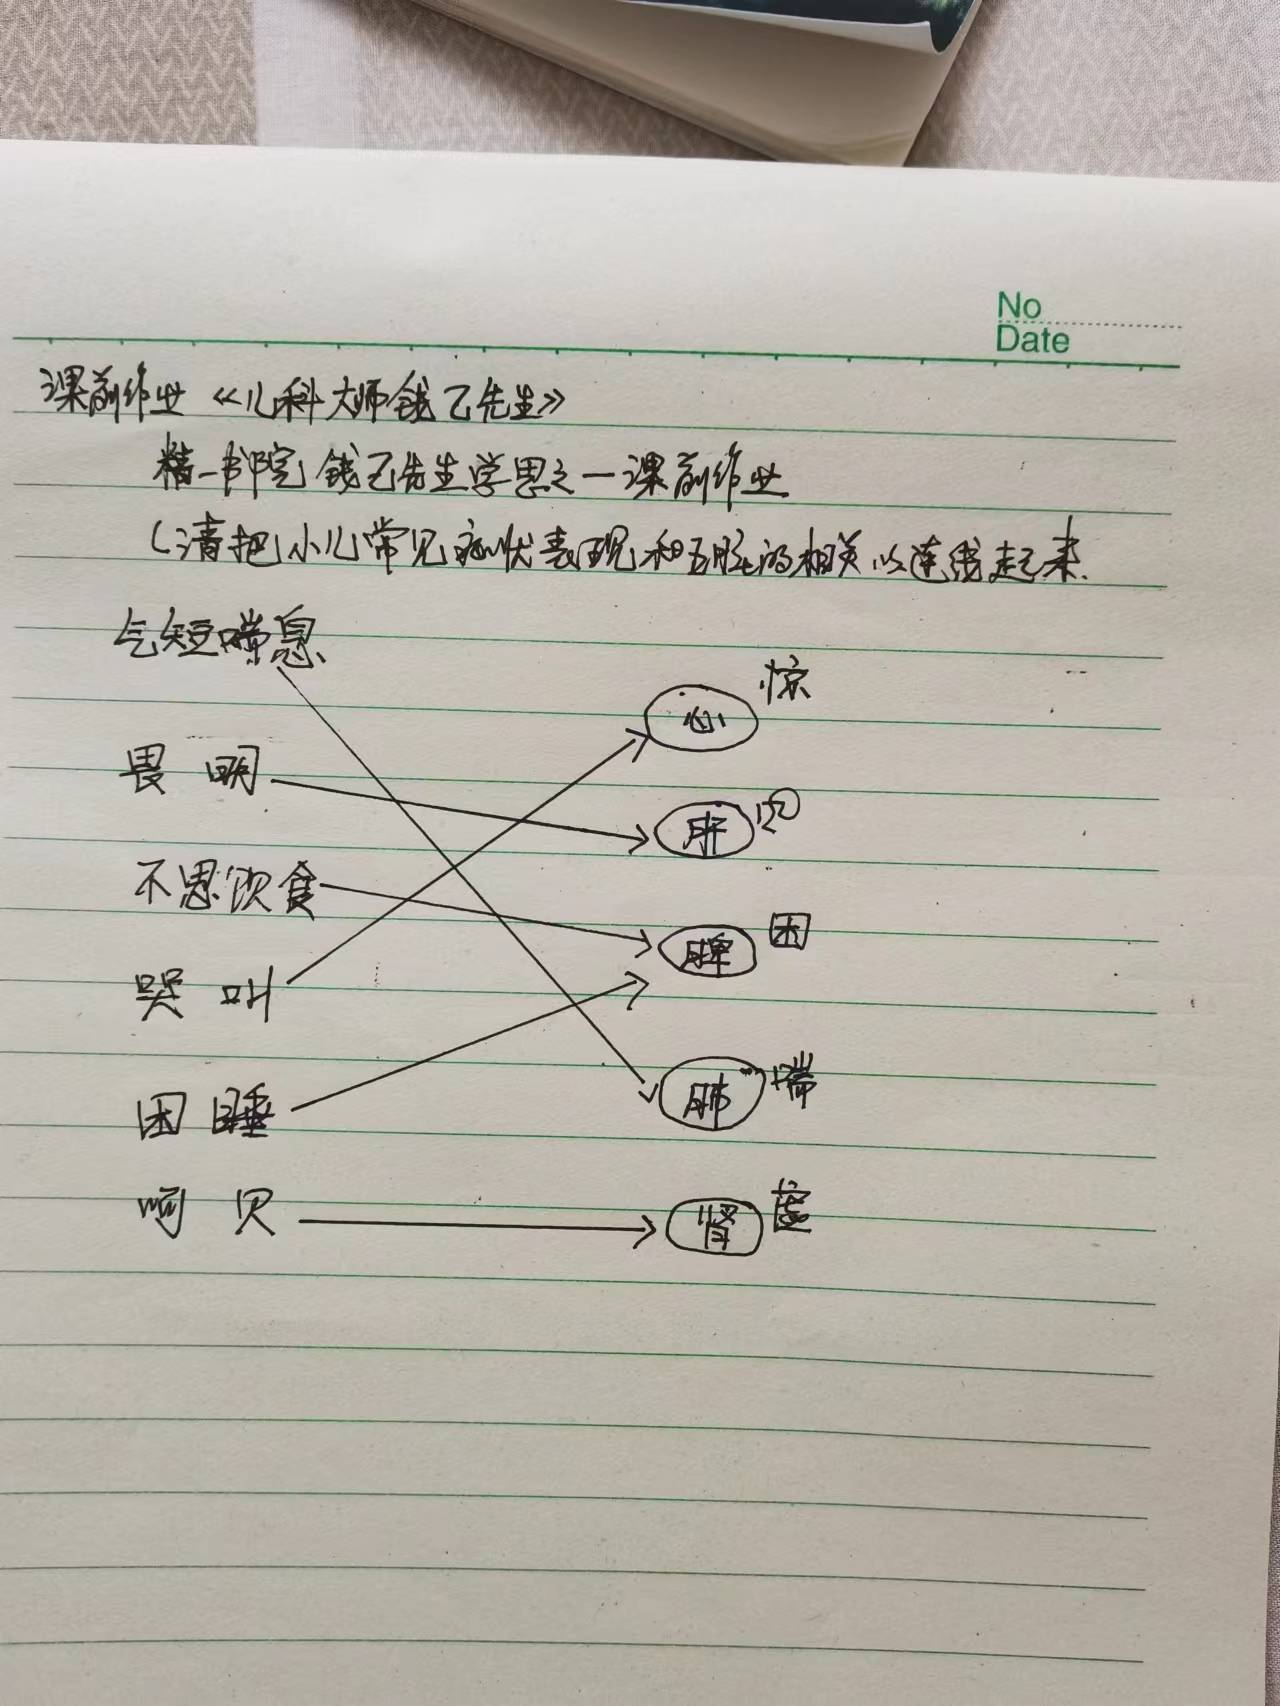 No
Date
课前作业《儿科大师钱乙先生》
精一书院钱乙先生学思之一课前作业
(请把小儿常见症状表现和五脏的相关以连线起来.
气短喘息
惊
心
畏明
肝
风
不思饮食
脾
困
哭叫
困睡
肺
喘
呵欠
肾
虚